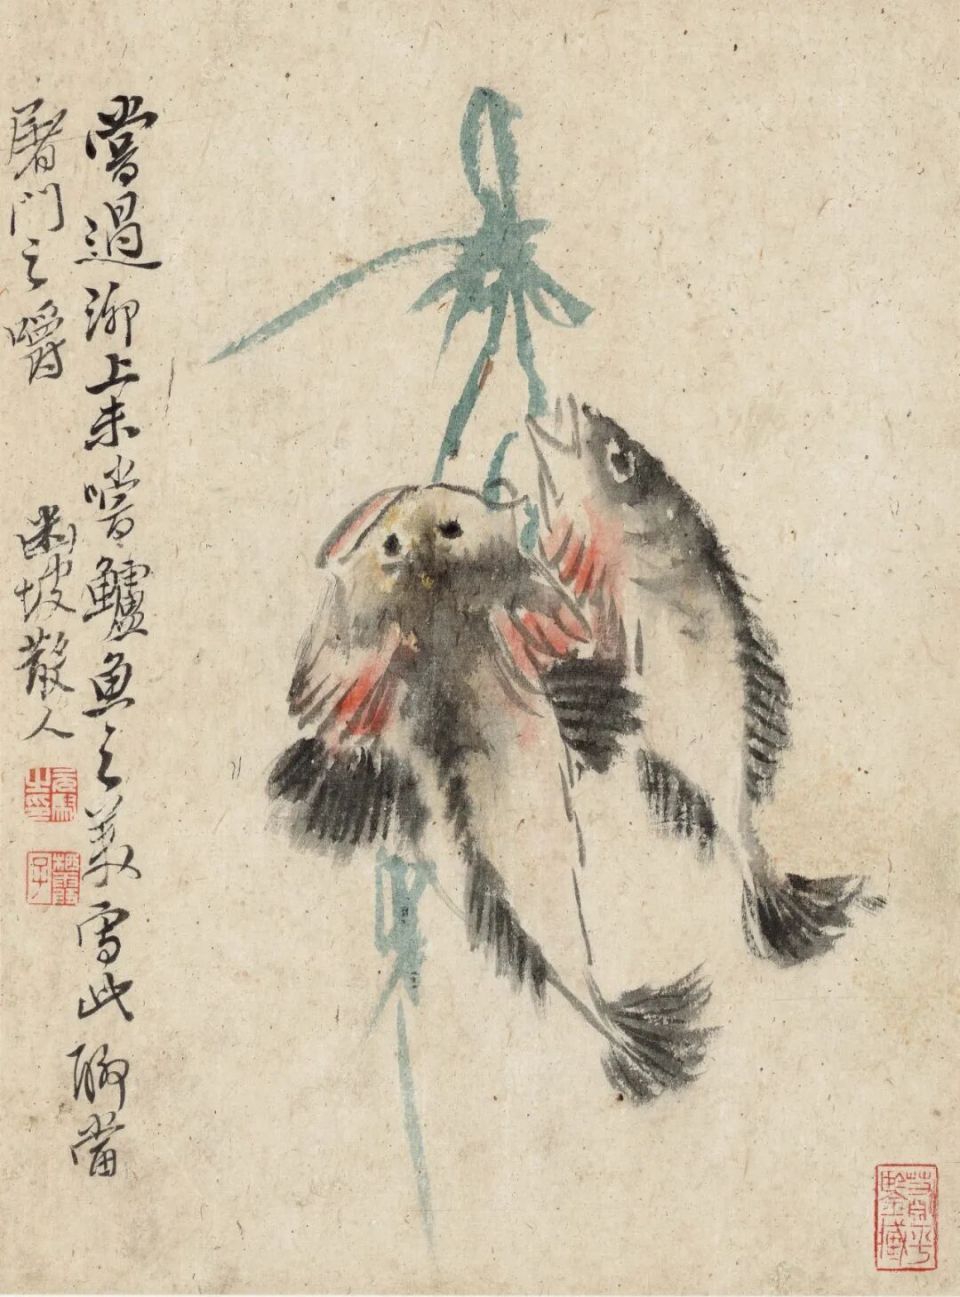 嘗過泖上未嚐鱸魚之美寫此聊當
屠門之嚼
坡散人